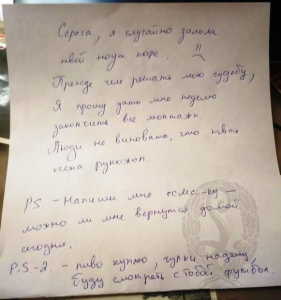 Серега, я случайно залила
твой ноут кофе. !!
Прежде чем решать мою судьбу,
Я прошу дать мне неделю
закончить все монтажи
Люди не виноваты, что твоя
жена рукожоп.
PS - Напиши мне есмс-ку —
можно ли мне вернутся домой
сегодня.
P.S-2. - пиво куплю, чулки надену,
буду смотреть с тобой футбол.